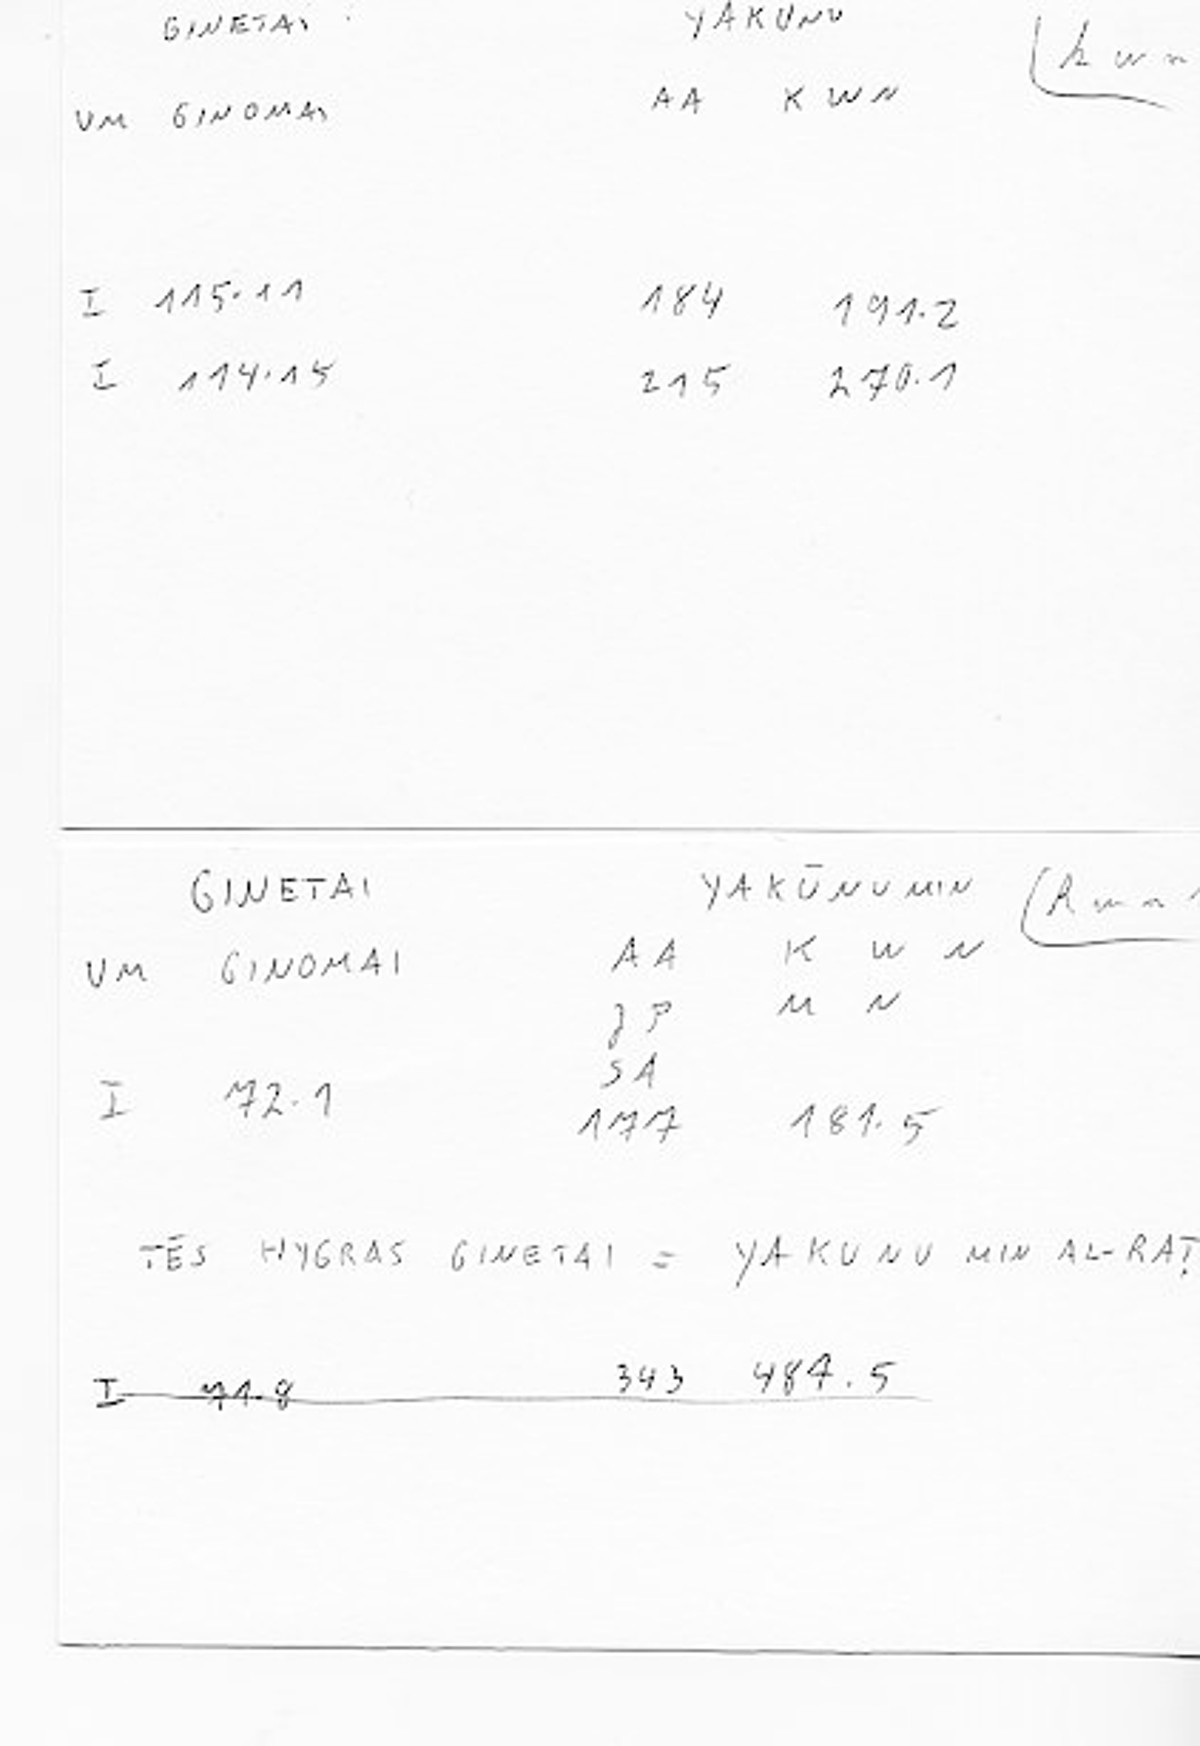 GINETAI YAKUNU
UM GINOMAI AA K W N
I 115.11 184 191.2
I 114.15 215 270.1
GINETAI YAKŪNU MIN
UM GINOMAI AA K W N
P M N
SA
I 72.1 177 181.5
TĒS HYGRAS GINETAI = YAKUNU MIN AL-RAṬ
I 71.8 343 484.5